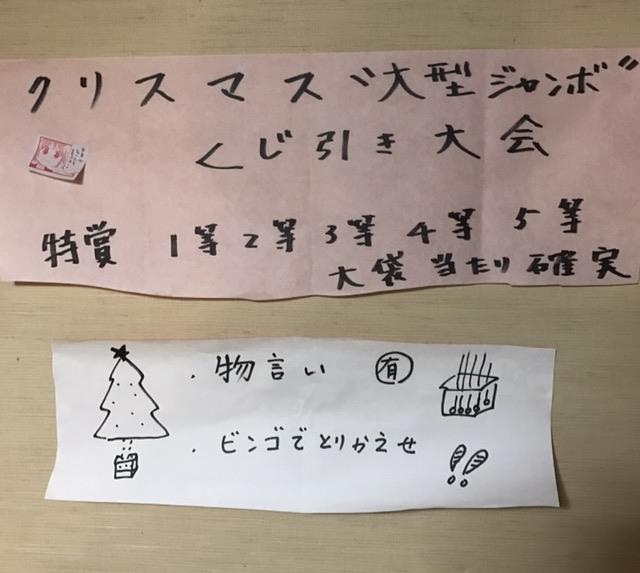 クリスマス“大型ジャンボ”
くじ引き大会
特賞 1等 2等 3等 4等 5等
大袋当たり確実
・物言い 有
・ビンゴでとりかえせ
!!